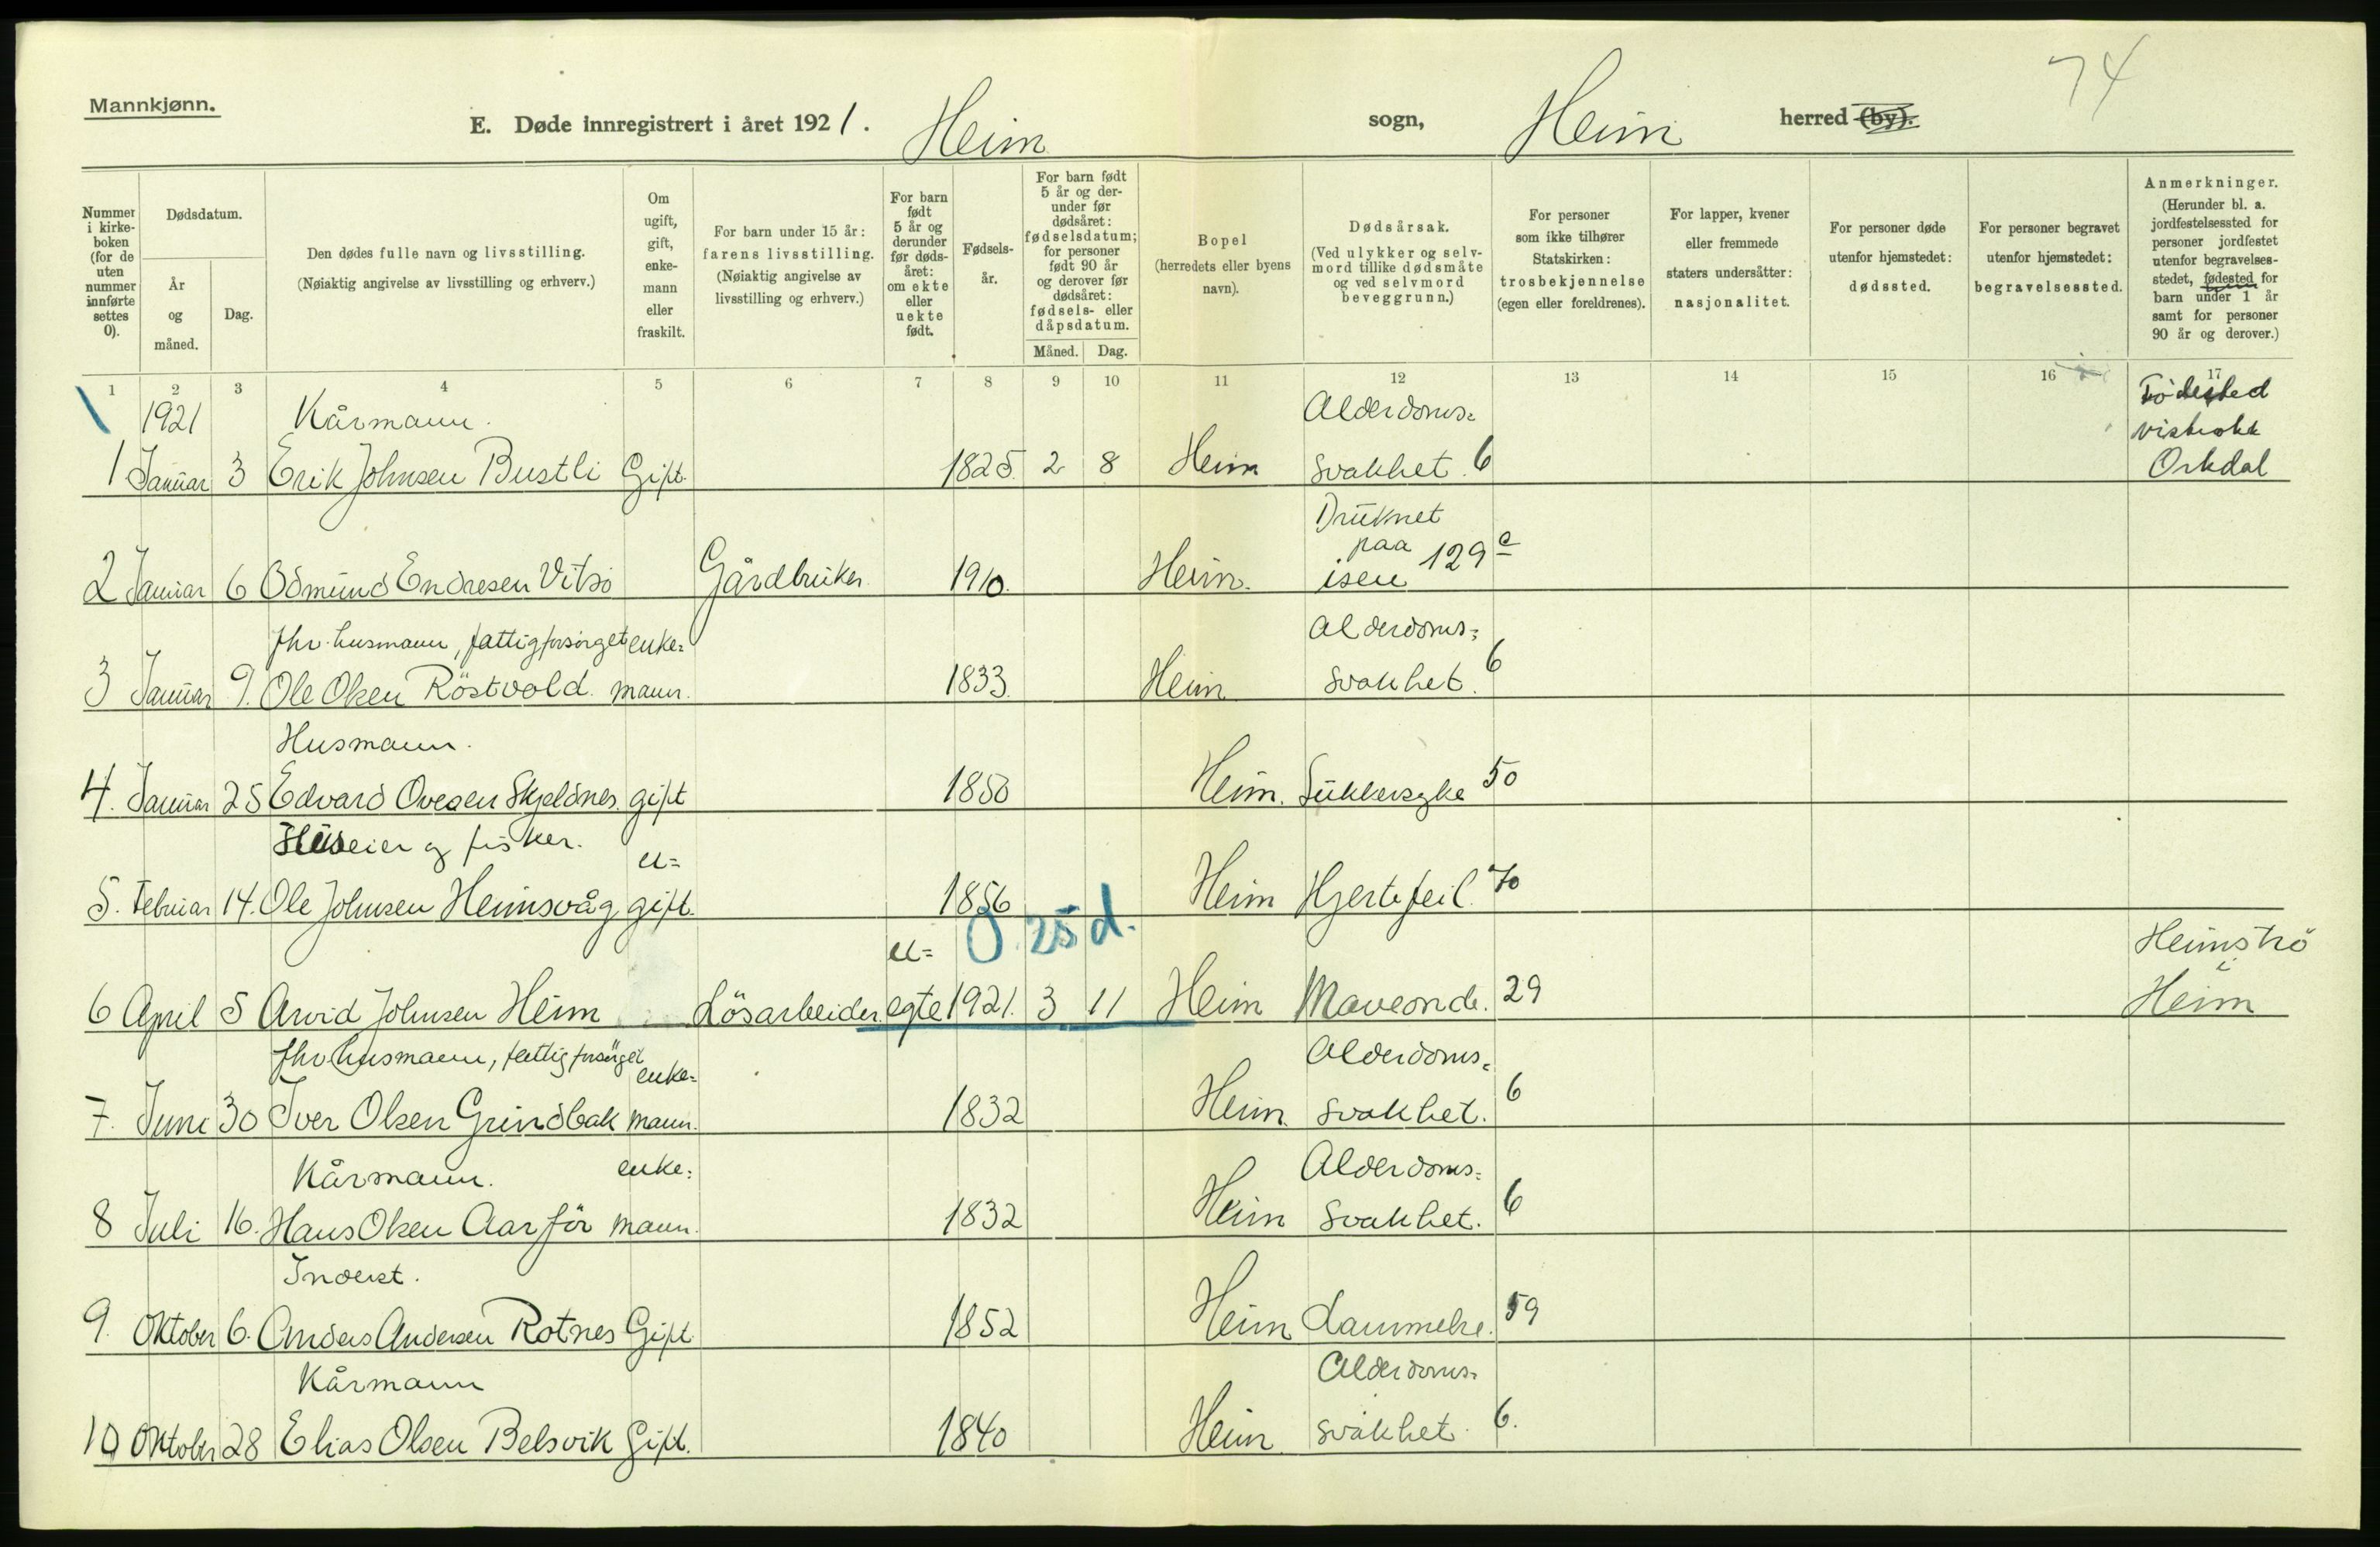 74
Mannkjønn.
E. Døde innregistrert i året 1921. Heim sogn, Heim herred (by).
Nummer i kirke-boken (for de uten nummer innførte settes 0).
Dødsdatum.
År og måned.
Dag.
Den dødes fulle navn og livsstilling.
(Nøiaktig angivelse av livsstilling og erhverv.)
Om ugift, gift, enke-mann eller fraskilt.
For barn under 15 år: farens livsstilling.
(Nøiaktig angivelse av livsstilling og erhverv.)
For barn født 5 år og derunder før døds-året: om ekte eller uekte født.
Fødsels-år.
For barn født 5 år og der-under før dødsåret: fødselsdatum; for personer født 90 år og derover før dødsåret: fødsels- eller dåpsdatum.
Måned. Dag.
Bopel
(herredets eller byens navn).
Dødsårsak.
(Ved ulykker og selv-mord tillike dødsmåte og ved selvmord beveggrunn.)
For personer som ikke tilhører Statskirken: trosbekjennelse (egen eller foreldrenes).
For lapper, kvener eller fremmede staters undersåtter: nasjonalitet.
For personer døde utenfor hjemstedet: dødssted.
For personer begravet utenfor hjemstedet: begravelsessted.
Anmerkninger.
(Herunder bl. a. jordfestelsessted for personer jordfestet utenfor begravelses-stedet, fødested for barn under 1 år samt for personer 90 år og derover.)
1 2 3 4 5 6 7 8 9 10 11 12 13 14 15 16 17
1921 Kårmann. Alderdoms= Fødested
1 Januar 3 Erik Johnsen Bustli Gift. 1825. 2 8 Heim svakhet. 6 Orkdal
Druknet
paa 129 a
2 Januar 6 Odmund Endresen Vitsö Gårdbruker. 1910. Heim. isen
Fhv. husmann, fattigforsörget enke= Alderdoms=
3 Januar 9. Ole Olsen Röstvold. mann. 1833. Heim svakhet. 6
Husmann.
4. Januar 25 Edvard Ovesen Skjeldnes. gift 1850 Heim. Sukkersyke 50
Huseier og fisker. u=
5. Februar 14. Ole Johnsen Heimsvåg gift. 1856 Heim Hjertefeil. 70
u= 0 25 d. Heimströ
i
6 April 5 Arvid Johnsen Heim Lösarbeider. egte 1921. 3 11 Heim Maveonde. 29 Heim
Fhv husmann, fattigforsörget enke= Alderdoms=
7. Juni 30 Iver Olsen Grindbak mann. 1832 Heim. svakhet. 6
Kårmann. enke= Alderdoms=
8 Juli 16. Hans Olsen Aarför mann. 1832 Heim svakhet. 6
Inderst.
9. Oktober 6. Anders Andersen Rotnes Gift 1852 Heim Lammelse. 59
Kårmann Alderdoms=
10 Oktober 28 Elias Olsen Belsvik Gift. 1840 Heim svakhet. 6.